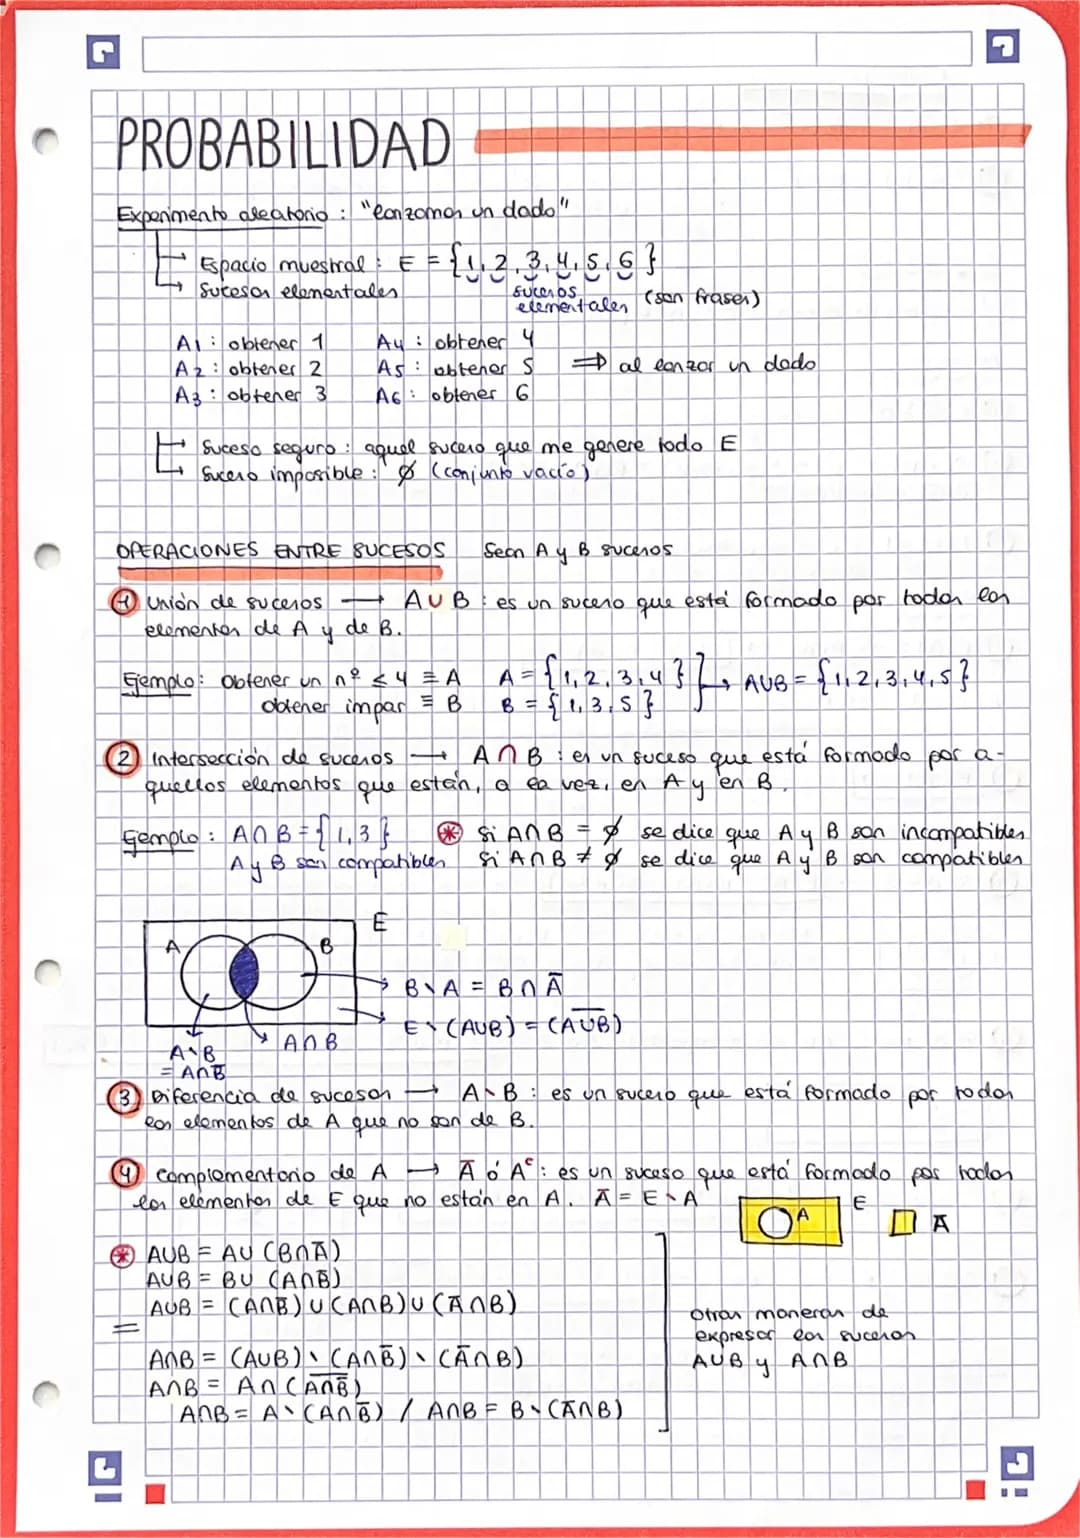 PROBABILIDAD
Experimento aleatorio : "lanzamos un dado"
Espacio muestral : E = {1, 2, 3, 4, 5, 6}
Sucesos elementales
sucesos
elementales (son frases)
A1 : obtener 1 A4 : obtener 4
A2 : obtener 2 A5 : obtener 5 ⟹ al lanzar un dado
A3 : obtener 3 A6 : obtener 6
Suceso seguro : aquel suceso que me genere todo E
Suceso imposible : ∅ (conjunto vacío)
OPERACIONES ENTRE SUCESOS Sean A y B sucesos
① Unión de sucesos → A ∪ B : es un suceso que está formado por todos los
elementos de A y de B.
Ejemplo : Obtener un nº ≤ 4 ≡ A A = {1, 2, 3, 4} → A∪B = {1, 2, 3, 4, 5}
obtener impar ≡ B B = {1, 3, 5}
② Intersección de sucesos → A ∩ B : es un suceso que está formado por a-
quellos elementos que están, a la vez, en A y en B.
Ejemplo : A∩B = {1, 3} ⊛ Si A∩B = ∅ se dice que A y B son incompatibles
A y B son compatibles Si A∩B ≠ ∅ se dice que A y B son compatibles
E
A B
B∖A = B∩A̅
E∖(A∪B) = (A̅∪̅B̅)
A∩B
A∖B
= A∩B̅
③ Diferencia de sucesos → A∖B : es un suceso que está formado por todos
los elementos de A que no son de B.
④ Complementario de A → A̅ ó Aᶜ : es un suceso que está formado por todos
los elementos de E que no están en A. A̅ = E∖A
A E A̅
⊛ A∪B = A∪(B∩A̅)
A∪B = B∪(A∩B̅)
A∪B = (A∩B̅)∪(A∩B)∪(A̅∩B)
=
A∩B = (A∪B)∖(A∩B̅)∖(A̅∩B)
A∩B = A∩(A̅∩̅B̅̅)
A∩B = A∖(A∩B̅) / A∩B = B∖(A̅∩B)
Otras maneras de
expresar los sucesos
A∪B y A∩B